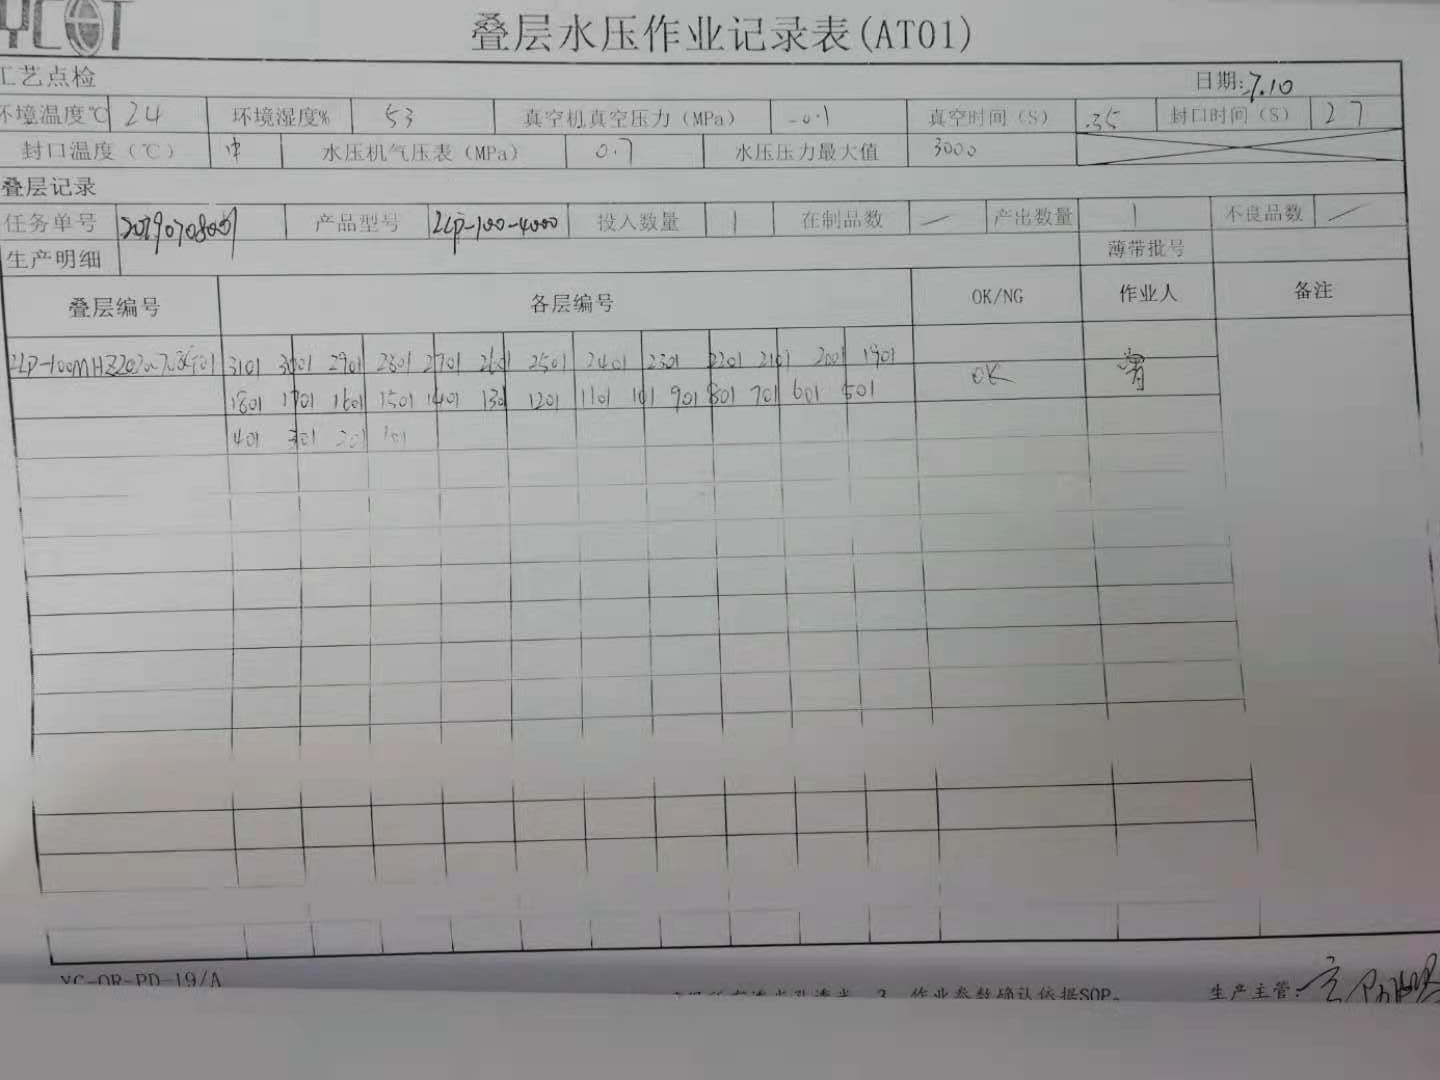 YCOT
叠层水压作业记录表(AT01)
工艺点检 日期:7.10
环境温度℃ 24 环境湿度% 53 真空机真空压力(MPa) -0.1 真空时间(S) 35 封口时间(S) 27
封口温度(℃) 中 水压机气压表(MPa) 0.7 水压压力最大值 3000
叠层记录
任务单号 产品型号 LLP-100-4000 投入数量 1 在制品数 — 产出数量 1 不良品数 /
生产明细 薄带批号
叠层编号 各层编号 OK/NG 作业人 备注
3101 3001 2901 2801 2701 2601 2501 2401 2301 2201 2101 2001 1901
1801 1701 1601 1501 1401 1301 1201 1101 101 901 801 701 601 501 OK
401 301 201 101
YC-QR-PD-19/A
3、作业参数确认依据SOP。 生产主管: